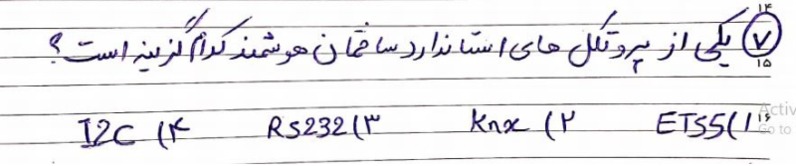 ۱۴
۷ یکی از پروتکل های استاندارد ساختمان هوشمند کدام گزینه است؟
۱۵
۱) ETS5 ۲) Knx ۳) RS232 ۴) I2C
۱۶
Activ
Go to